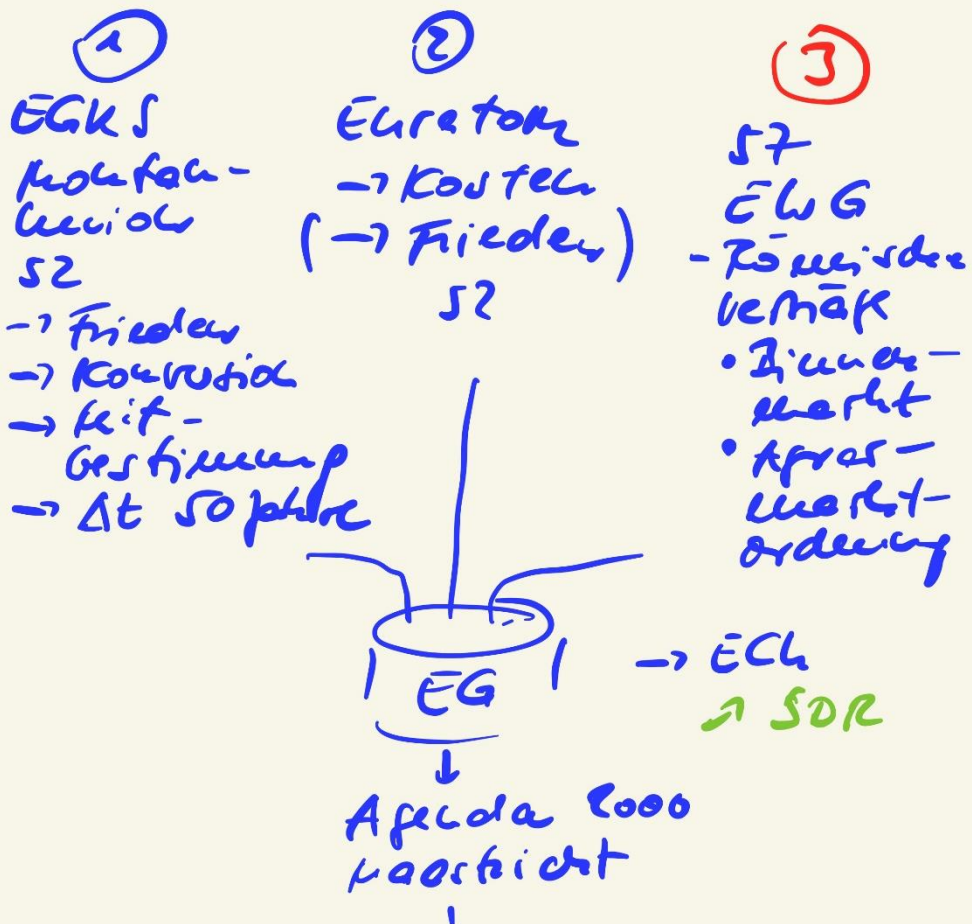 1
EGKS
Montan-
union
52
→ Frieden
→ Konversion
→ Mit-
bestimmung
→ Δt 50 Jahre
2
Euratom
→ Kosten
(→ Frieden)
52
3
57
EWG
- Römische
Verträge
• Binnen-
markt
• Agrar-
markt-
ordnung
EG
→ ECU
↗ SDR
↓
Agenda 2000
Maastricht